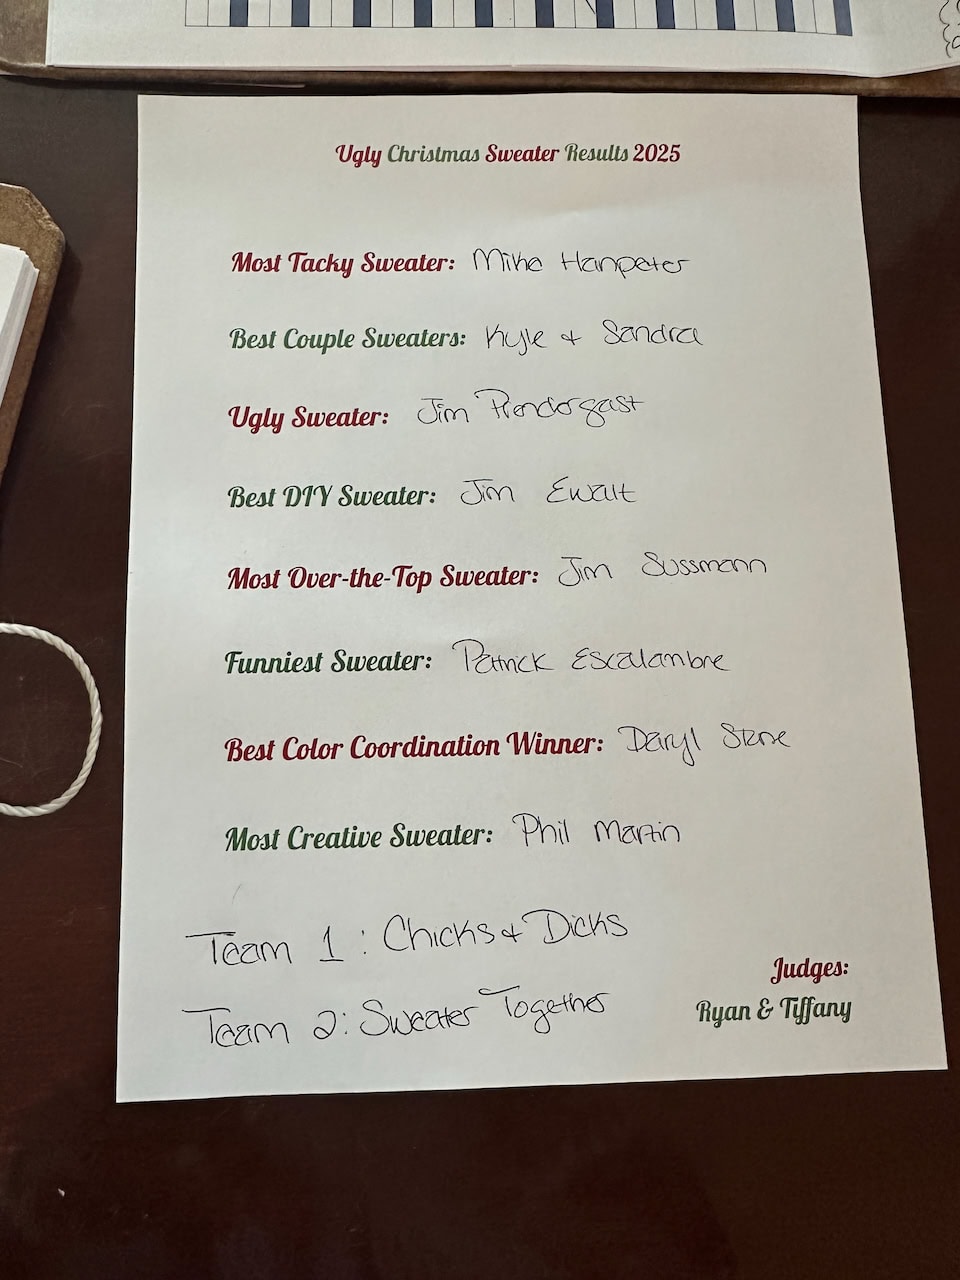 Ugly Christmas Sweater Results 2025
Most Tacky Sweater: Mike Hanpeter
Best Couple Sweaters: Kyle + Sandra
Ugly Sweater: Jim Prendergast
Best DIY Sweater: Jim Ewalt
Most Over-the-Top Sweater: Jim Sussmann
Funniest Sweater: Patrick Escalambre
Best Color Coordination Winner: Daryl Stone
Most Creative Sweater: Phil Martin
Team 1: Chicks + Dicks
Team 2: Sweater Together
Judges:
Ryan & Tiffany